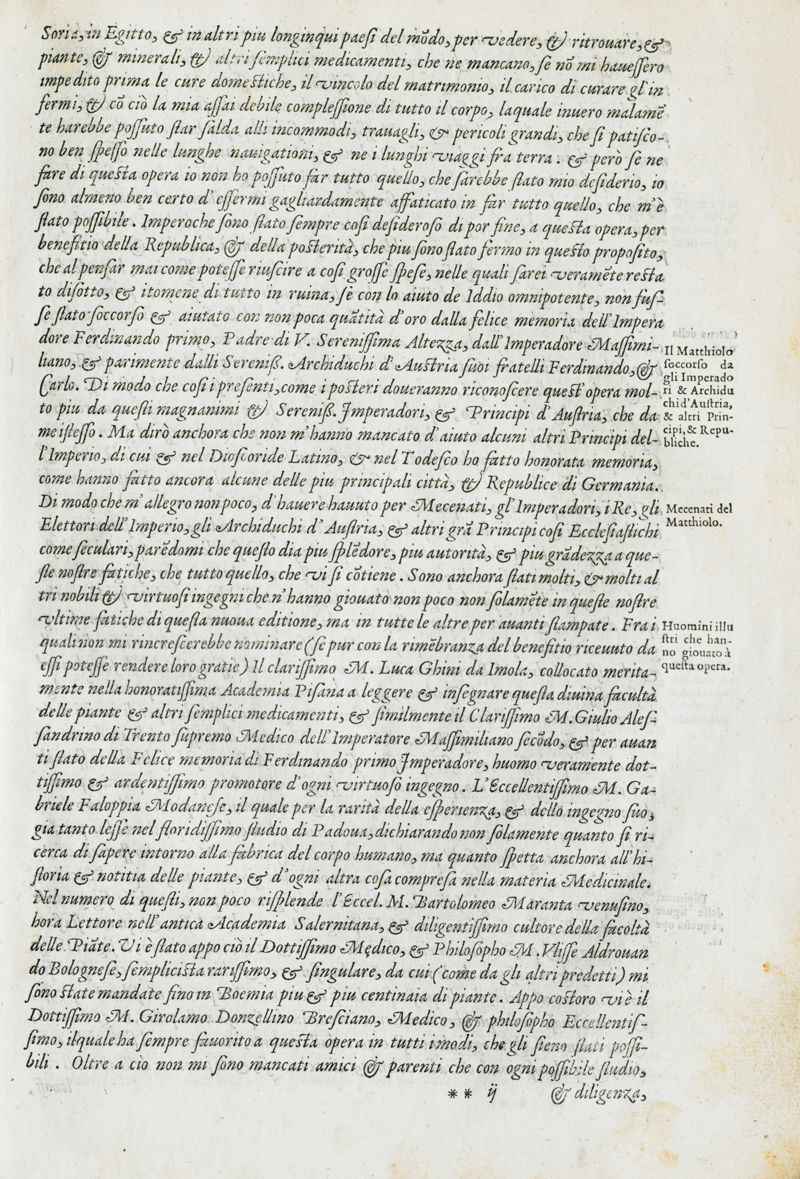 Soria, in Egitto, & in altri piu longinqui paesi del mõdo, per vedere, & ritrouare, &
piante, & minerali, & altri semplici medicamenti, che ne mancano, se nõ mi hauessero
impedito prima le cure domestiche, il vincolo del matrimonio, il carico di curare gl'in
fermi, & cõ ciò la mia assai debile complessione di tutto il corpo, laquale inuero malamẽ
te harebbe possuto star salda alli incommodi, trauagli, & pericoli grandi, che si patisco-
no ben spesso nelle lunghe nauigationi, & ne i lunghi viaggi fra terra. & però se ne
fare di questa opera io non ho possuto far tutto quello, che sarebbe stato mio desiderio, io
sono almeno ben certo d'essermi gagliardamente affaticato in far tutto quello, che m'è
stato possibile. Imperoche sono stato sempre cosi desideroso di por fine, a questa opera, per
benefitio della Republica, & della posterità, che piu sono stato fermo in questo proposito,
che al pensar mai come potesse riuscire a cosi grosse spese, nelle quali sarei veramẽte resta
to disotto, & itomene di tutto in ruina, se con lo aiuto de Iddio omnipotente, non fus-
se stato soccorso & aiutato con non poca quãtità d'oro dalla felice memoria dell'Impera
dore Ferdinando primo, Padre di V. Serenissima Altezza, dall'Imperadore Massimi-
liano, & parimente dalli Sereniss. Archiduchi d'Austria suoi fratelli Ferdinando, &
Carlo. Di modo che cosi i presenti, come i posteri doueranno riconoscere quest'opera mol-
to piu da questi magnanimi & Sereniss. Imperadori, & Principi d'Austria, che da
me istesso. Ma dirò anchora che non m'hanno mancato d'aiuto alcuni altri Principi del-
l'Imperio, di cui & nel Dioscoride Latino, & nel Todesco ho fatto honorata memoria,
come hanno fatto ancora alcune delle piu principali città, & Republice di Germania.
Di modo che m'allegro non poco, d'hauere hauuto per Mecenati, gl'Imperadori, i Re, gli
Elettori dell'Imperio, gli Archiduchi d'Austria, & altri grã Principi cosi Ecclesiastichi
come seculari, parẽdomi che questo dia piu splẽdore, piu autorità, & piu grãdezza a que-
ste nostre fatiche, che tutto quello, che vi si cõtiene. Sono anchora stati molti, & molti al
tri nobili & virtuosi ingegni che n'hanno giouato non poco non solamẽte in queste nostre
vltime fatiche di questa nuoua editione, ma in tutte le altre per auanti stampate. Fra i
quali non mi rincrescerebbe nominare (se pur con la rimẽbranza del benefitio riceuuto da
essi potesse rendere loro gratie) Il clarissimo M. Luca Ghini da Imola, collocato merita-
mente nella honoratissima Academia Pisana a leggere & insegnare questa diuina facultà
delle piante & altri semplici medicamenti, & similmente il Clarissimo M. Giulio Ales-
sandrino di Trento supremo Medico dell'Imperatore Massimiliano secõdo, & per auan
ti stato della Felice memoria di Ferdinando primo Imperadore, huomo veramente dot-
tissimo & ardentissimo promotore d'ogni virtuoso ingegno. L'Eccellentissimo M. Ga-
briele Faloppia Modanese, il quale per la rarità della esperienza, & dello ingegno suo,
gia tanto lesse nel floridissimo studio di Padoua, dichiarando non solamente quanto si ri-
cerca di sapere intorno alla fabrica del corpo humano, ma quanto spetta anchora all'hi-
storia & notitia delle piante, & d'ogni altra cosa compresa nella materia Medicinale.
Nel numero di questi, non poco risplende l'Eccel. M. Bartolomeo Maranta venusino,
hora Lettore nell'antica Academia Salernitana, & diligentissimo cultore della facoltà
delle Piãte. Vi è stato appo ciò il Dottissimo Medico, & Philosopho M. Vlisse Aldrouan
do Bolognese, semplicista rarissimo, & singulare, da cui (come da gli altri predetti) mi
sono state mandate fino in Boemia piu & piu centinaia di piante. Appo costoro vi è il
Dottissimo M. Girolamo Donzellino Bresciano, Medico, & philosopho Eccellentis-
simo, il quale ha sempre fauorito a questa opera in tutti i modi, che gli sieno stati possi-
bili. Oltre a cio non mi sono mancati amici & parenti che con ogni possibile studio,
** ij & diligenza,
Il Matthiolo
soccorso da
gli Imperado
ri & Archidu
chi d'Austria,
& altri Prin-
cipi, & Repu-
bliche.
Mecenati del
Matthiolo.
Huomini illu
stri che han-
no giouato à
questa opera.